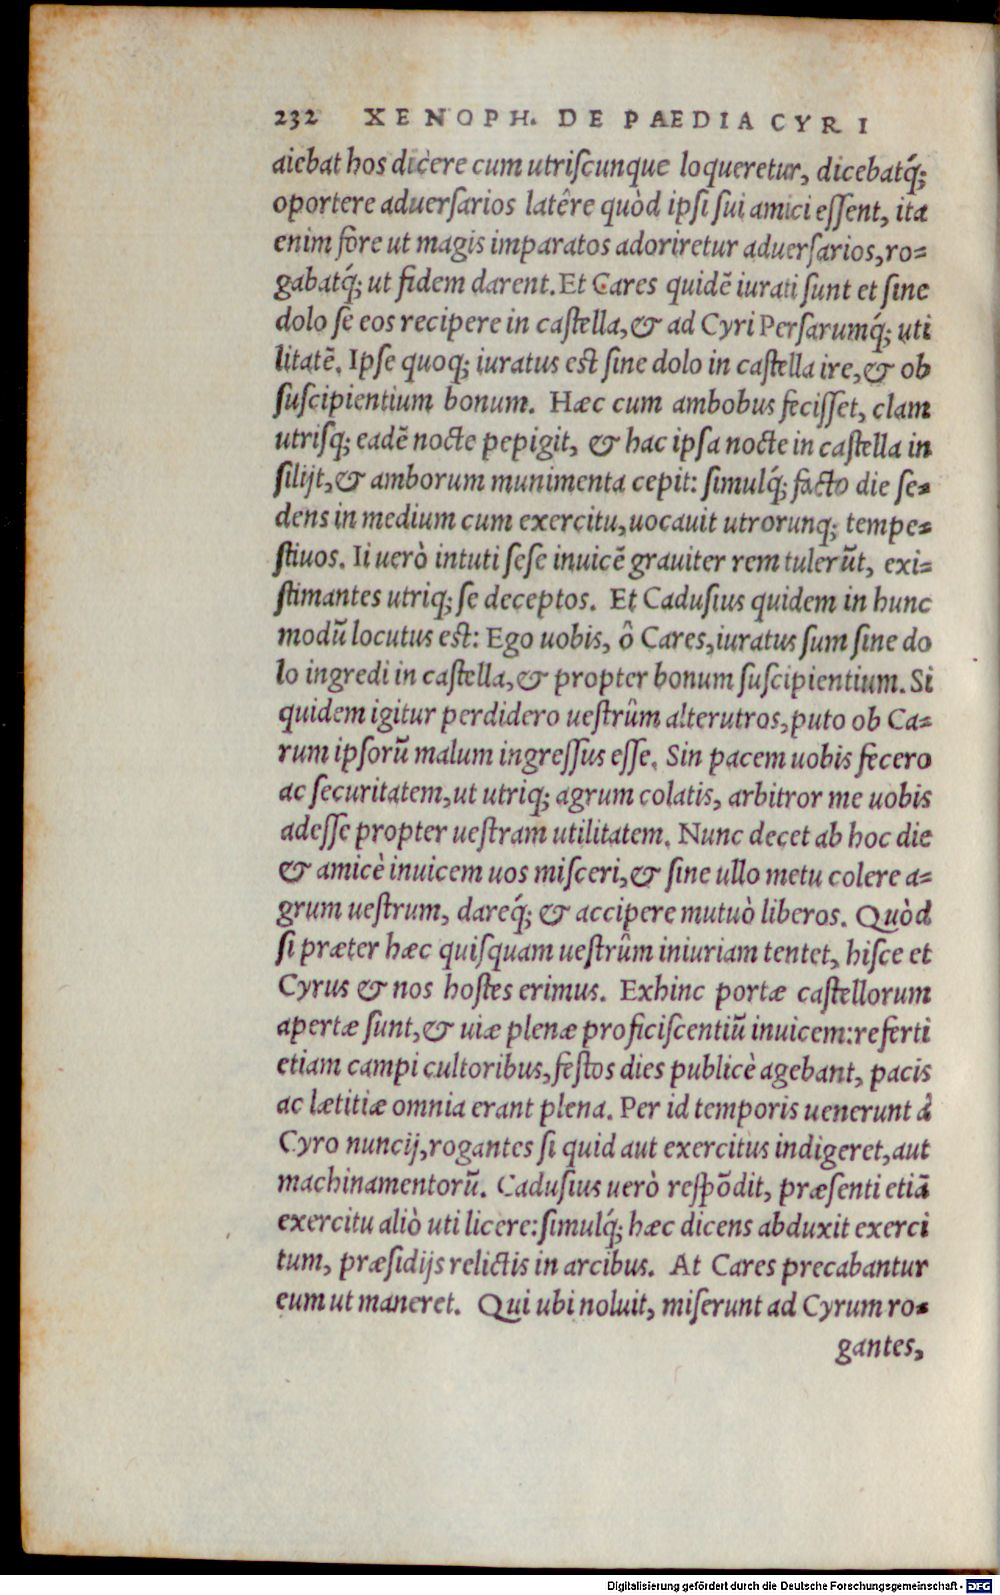 232 XENOPH. DE PAEDIA CYRI
aiebat hos dicere cum utriſcunque loqueretur, dicebatq́;
oportere aduerſarios latêre quòd ipſi ſui amici eſſent, ita
enim fore ut magis imparatos adoriretur aduerſarios, ro=
gabatq́; ut fidem darent. Et Cares quidē iurati ſunt et ſine
dolo ſe eos recipere in caſtella, & ad Cyri Perſarumq́; uti
litatē. Ipſe quoq; iuratus est ſine dolo in caſtella ire, & ob
ſuſcipientium bonum. Hæc cum ambobus feciſſet, clam
utriſq; eadē nocte pepigit, & hac ipſa nocte in caſtella in
ſilijt, & amborum munimenta cepit: ſimulq́; facto die ſe=
dens in medium cum exercitu, uocauit utrorunq; tempe=
ſtiuos. Ii uerò intuti ſeſe inuicē grauiter rem tulerūt, exi=
ſtimantes utriq; ſe deceptos. Et Caduſius quidem in hunc
modū locutus est: Ego uobis, ô Cares, iuratus ſum ſine do
lo ingredi in caſtella, & propter bonum ſuſcipientium. Si
quidem igitur perdidero ueſtrûm alterutros, puto ob Ca=
rum ipſorū malum ingreſſus eſſe. Sin pacem uobis fecero
ac ſecuritatem, ut utriq; agrum colatis, arbitror me uobis
adeſſe propter ueſtram utilitatem. Nunc decet ab hoc die
& amicè inuicem uos miſceri, & ſine ullo metu colere a=
grum ueſtrum, dareq́; & accipere mutuò liberos. Quòd
ſi præter hæc quiſquam ueſtrûm iniuriam tentet, hiſce et
Cyrus & nos hoſtes erimus. Exhinc portæ caſtellorum
apertæ ſunt, & uiæ plenæ proficiſcentiū inuicem: referti
etiam campi cultoribus, feſtos dies publicè agebant, pacis
ac lætitiæ omnia erant plena. Per id temporis uenerunt à
Cyro nuncij, rogantes ſi quid aut exercitus indigeret, aut
machinamentorū. Caduſius uerò reſpōdit, præſenti etiā
exercitu aliò uti licere: ſimulq́; hæc dicens abduxit exerci
tum, præſidijs relictis in arcibus. At Cares precabantur
eum ut maneret. Qui ubi noluit, miſerunt ad Cyrum ro=
gantes,
Digitalisierung gefördert durch die Deutsche Forschungsgemeinschaft - DFG